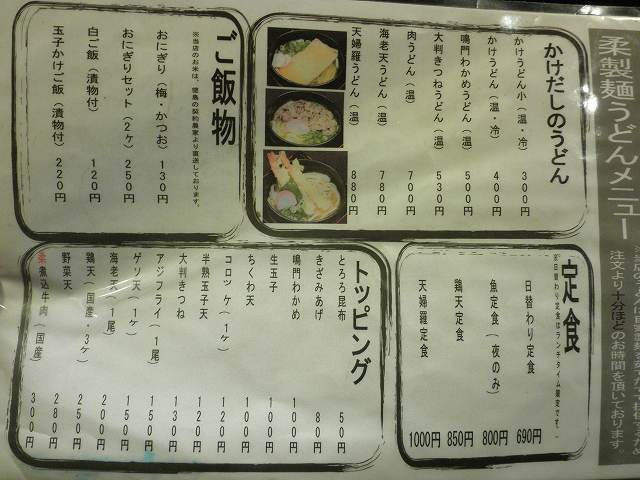 柔製麺うどんメニュー
注文より十分ほどのお時間を頂いております。
かけだしのうどん
かけうどん小(温・冷) 300円
かけうどん(温・冷) 400円
鳴門わかめうどん(温) 500円
大判きつねうどん(温) 530円
肉うどん(温) 700円
海老天うどん(温) 780円
天婦羅うどん(温) 880円
ご飯物
※当店のお米は、徳島の契約農家より直送しております。
おにぎり(梅・かつお) 130円
おにぎりセット(2ヶ) 250円
白ご飯(漬物付) 120円
玉子かけご飯(漬物付) 220円
定食
※日替わり定食はランチタイム限定です。
日替わり定食 690円
魚定食(夜のみ) 800円
鶏天定食 850円
天婦羅定食 1000円
トッピング
とろろ昆布 50円
きざみあげ 80円
鳴門わかめ 100円
生玉子 100円
ちくわ天 100円
コロッケ(1ヶ) 120円
半熟玉子天 120円
大判きつね 130円
アジフライ(1尾) 150円
ゲソ天(1ヶ) 150円
海老天(1尾) 200円
鶏天(国産・3ヶ) 250円
野菜天 280円
柔煮込牛肉(国産) 300円